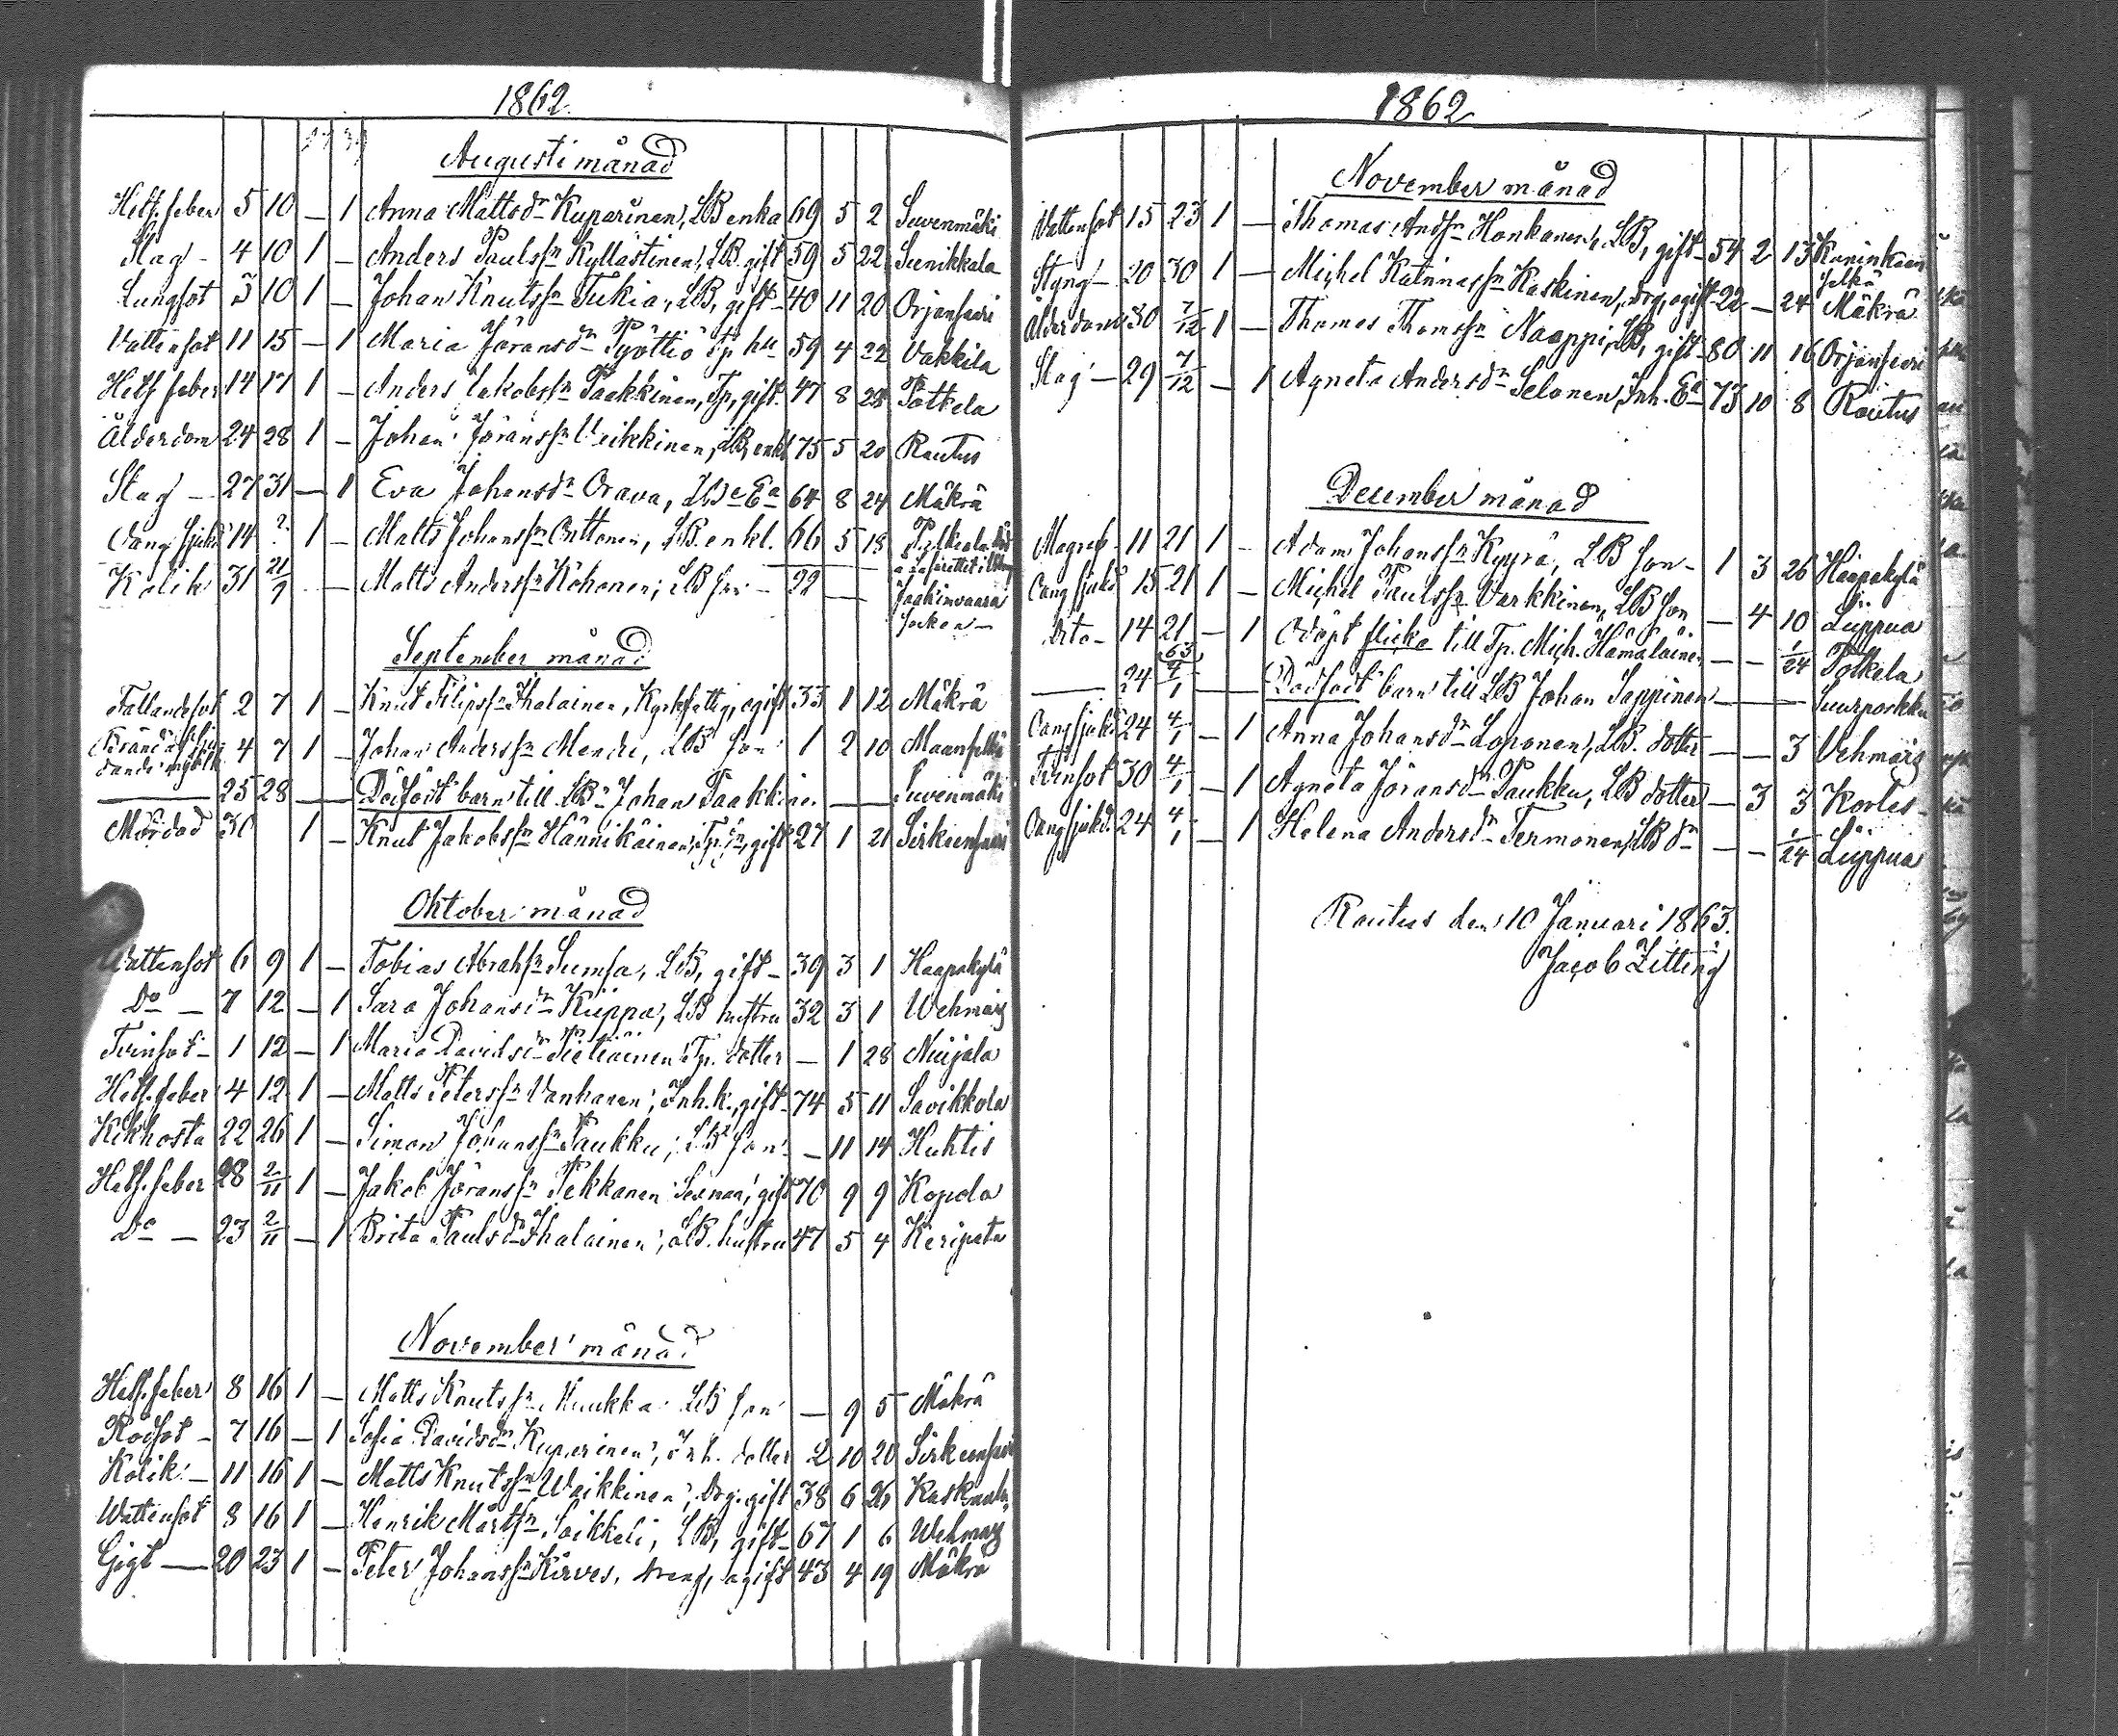 1862
Augusti månad
Hetf. feber 5 10 — 1 Anna Mattsdr Kuparinen, LB enka 69 5 2 Suvenmäki
Slag - 4 10 1 — Anders Paulssn Kyllästinen, LB. gift 59 5 22 Sunikkala
Lungsot 3 10 1 — Johan Knutssn Tukia, LB, gift - 40 11 20 Orjansaari
Vattensot 11 15 — 1 Maria Jöransdr Pyöttiö Tp hu 59 4 22 Vakkila
Hetf feber 14 17 1 — Anders Jakobssn Paakkinen, Tp, gift. 47 8 22 Potkela
Ålderdom 24 28 1 — Johan Jöranssn Veikkinen, LB, enkl 75 5 20 Rautus
Slag - 27 31 — 1 Eva Johansdr Orava, LBs Ea 64 8 24 Mäkrä
Oäng sjukd 14 ? 1 — Matts Johanssn Outtonen, LB. enkl. 66 5 18
Kolik 31 21/9 — Matts Anderssn Kohonen, LB son - 22 — Jaakimvaara
socken —
September månad
Fallandesot 2 7 1 — Knut Filipssn Ihalainen, Kyrkfattig, ogift 33 1 12 Mäkrä
4 7 1 — Johan Anderssn Mendi, LB son 1 2 10 Maanselkä
— 25 28 — — Dödfödt barn till LBn Johan Paakkinen — — Suvenmäki
Mördad 30 1 — Knut Jakobssn Hännikäinen, Tp. sn, gift 27 1 21 Sirkiensaari
Oktober månad
Wattensot 6 9 1 — Tobias Abrahsn Sumsa, LB, gift - 39 3 1 Haapakylä
Do — 7 12 — 1 Sara Johansdr Kiippa, LB hustru 32 3 1 Wehmais
Tvinsot - 1 12 — 1 Maria Davidsdr Pietiäinen Tp. dotter — 1 28 Nuijala
Hetf. feber 4 12 1 — Matts Peterssn Vanhanen, Inh. k., gift - 74 5 11 Savikkola
Kikhosta 22 26 1 — Simon Johanssn Paukku, LB son - — 11 14 Huhtis
Hetf. feber 28 2/11 1 — Jakob Jöranssn Pekkanen gift 70 9 9 Kopola
Do — 23 2/11 — 1 Brita Paulsdr Ihalainen, LB. hustru 47 5 4 Keripata
November månad
Hetf. feber 8 16 1 — Matts Knutssn Muukka LB son — 9 5 Mäkrä
Rödsot - 7 16 — 1 Sofia Davidsdr Kuparinen, Inh. dotter 2 10 20 Sirkiensaari
Kolik - 11 16 1 — Matts Knutssn Waikkinen, Drg. gift 38 6 26 Kaskaala
Wattensot 8 16 1 — Henrik Mårtssn Soikkeli, LB, gift - 67 1 6 Wehmais
Gigt — 20 23 1 — Peter Johanssn Kirves, dreng, ogift 43 4 19 Mäkrä
1862
November månad
Vattensot 15 23 1 — Thomas Andssn Honkanen, LB, gift - 54 2 13 Kuninkaan
selkä
Styng - 20 30 1 — Michel Katrinassn Kaskinen, drg, ogift - 22 — 24 Mäkrä
Ålderdom 30 7/12 1 — Thomas Thomssn Naappi, LB, gift - 80 11 16 Orjansaari
Slag — 29 7/12 — 1 Agneta Andersdr Selonen, Inh. Ea 73 10 8 Rautus
December månad
Magref - 11 21 1 — Adam Johanssn Kyyrä, LB son - 1 3 26 Haapakylä
Oäng sjukd 15 21 1 — Michel Paulssn Varkkinen, LB son — 4 10 Liippua
Dito - 14 21 — 1 Odöpt flicka till Tp. Mich. Hämäläinen — — 1/24 Potkela
63
— 24 4/1 — Dödfödt barn till LB Johan Seppinen — — — Suurporkku
Oäng sjukd 24 4/1 — 1 Anna Johansdr Loponen, LB. dotter — — 3 Vehmais
Tvinsot 30 4/1 — 1 Agneta Jöransdr Paukku, LB dotter — 3 3 Kortes -
Oäng sjukd. 24 4/1 — 1 Helena Andersdr Termonen, LB dr — — 1/24 Liippua
Rautus den 10 Januari 1863.
Jacob Zitting